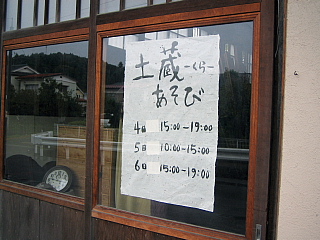 土蔵-くら-
あそび
4日 15:00-19:00
5日 10:00-15:00
6日 15:00-19:00